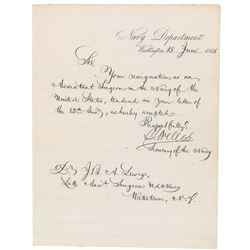 Navy Department
Washington 15 June 1865
Sir,
Your resignation as an
Assistant Surgeon in the Navy of the
United States, tendered in your letter of
the 13th inst, is hereby accepted.
Respectfully,
G Welles
Secretary of the Navy
A. Lewis,
Late Asst. Surgeon U.S. Navy
Watertown, N.Y.